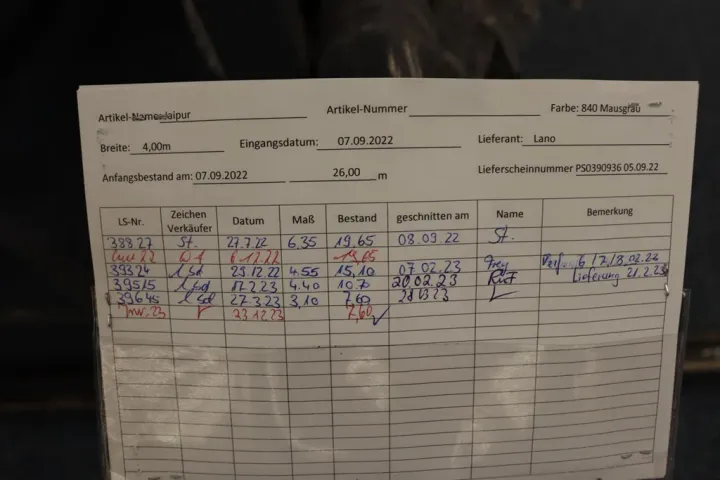 Artikel-Name: Jaipur Artikel-Nummer Farbe: 840 Mausgrau
Breite: 4,00m Eingangsdatum: 07.09.2022 Lieferant: Lano
Anfangsbestand am: 07.09.2022 26,00 m Lieferscheinnummer PS0390936 05.09.22
LS-Nr. Zeichen Verkäufer Datum Maß Bestand geschnitten am Name Bemerkung
38827 St. 27.7.22 6.35 19,65 08.09.22 St.
22 6.12.22 19,65
39324 29.12.22 4.55 15,10 07.02.23 Frey
39515 17.2.23 4.40 10,70 20.02.23 Lieferung 21.2.23
39645 27.3.23 3,10 7,60 28.03.23
Inv. 23 23.12.23 7,60